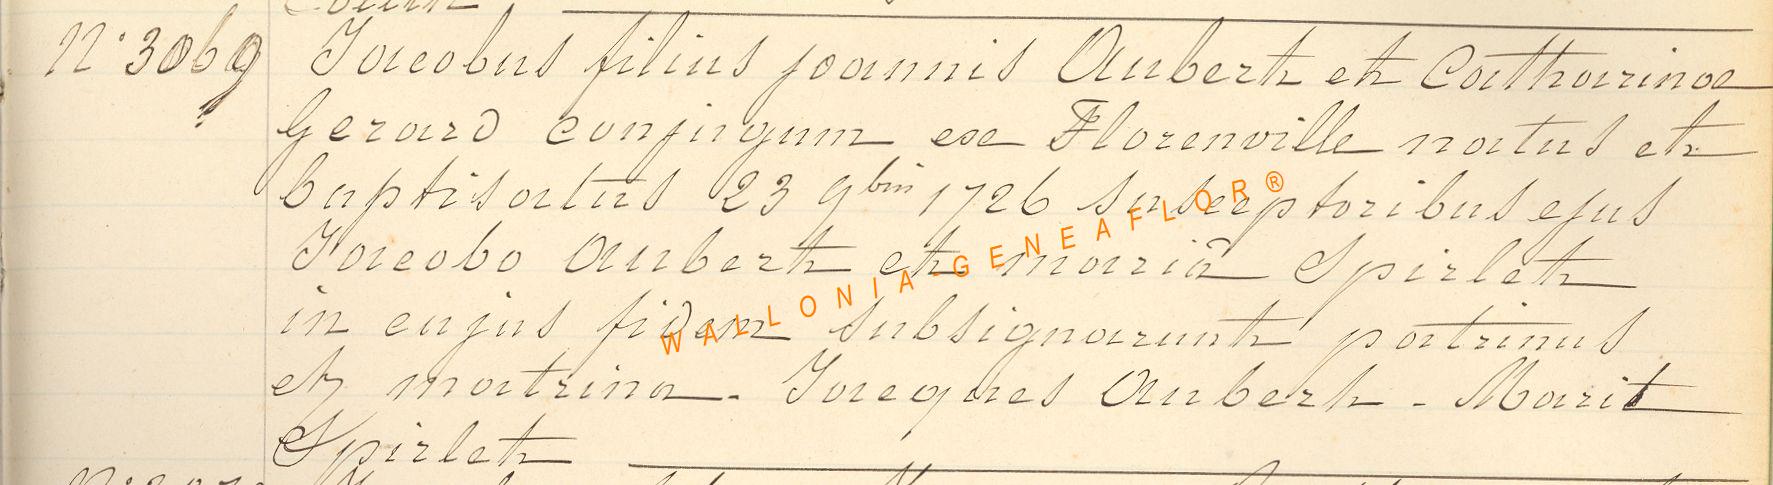 N° 3069 Jacobus filius joannis Aubert et Catharinae
Gerard conjugum ex Florenville natus et
baptisatus 23 9bris 1726 susceptoribus ejus
Jacobo Aubert et mariâ Spirlet
in cujus fidem subsignarunt patrinus
et matrina. Jacques Aubert - Marit
Spirlet
WALLONIA-GENEAFLOR®